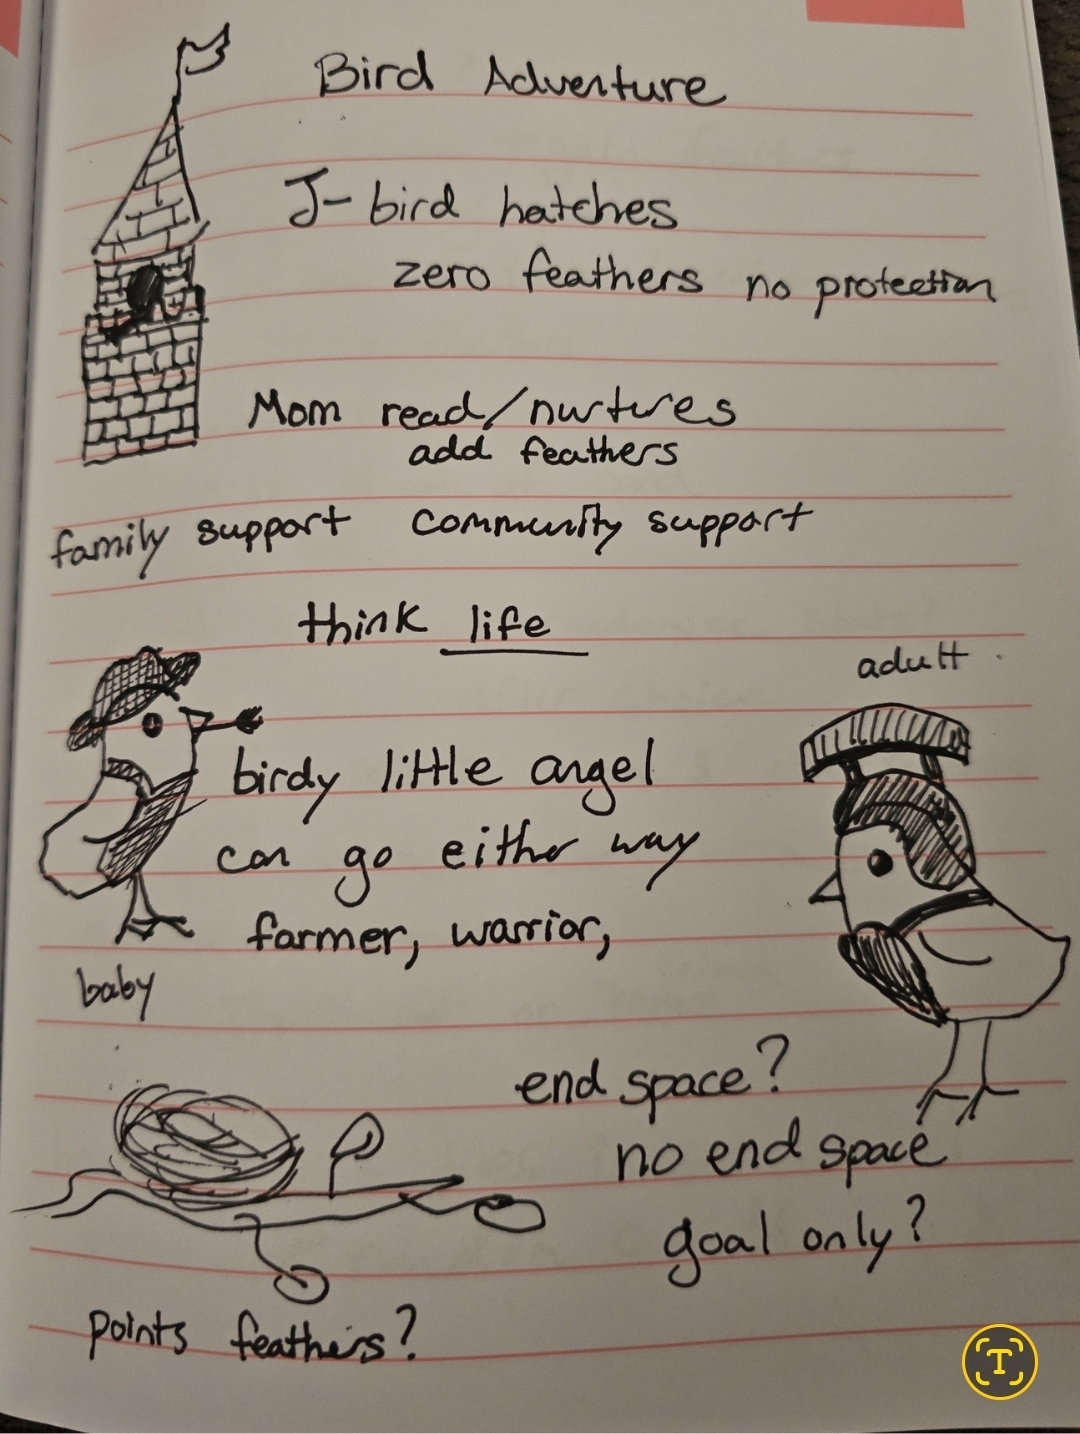 Bird Adventure
J-bird hatches
zero feathers no protection
Mom read/nurtures
add feathers
family support community support
think life
adult
birdy little angel
can go either way
farmer, warrior,
baby
end space?
no end space
goal only?
points feathers?